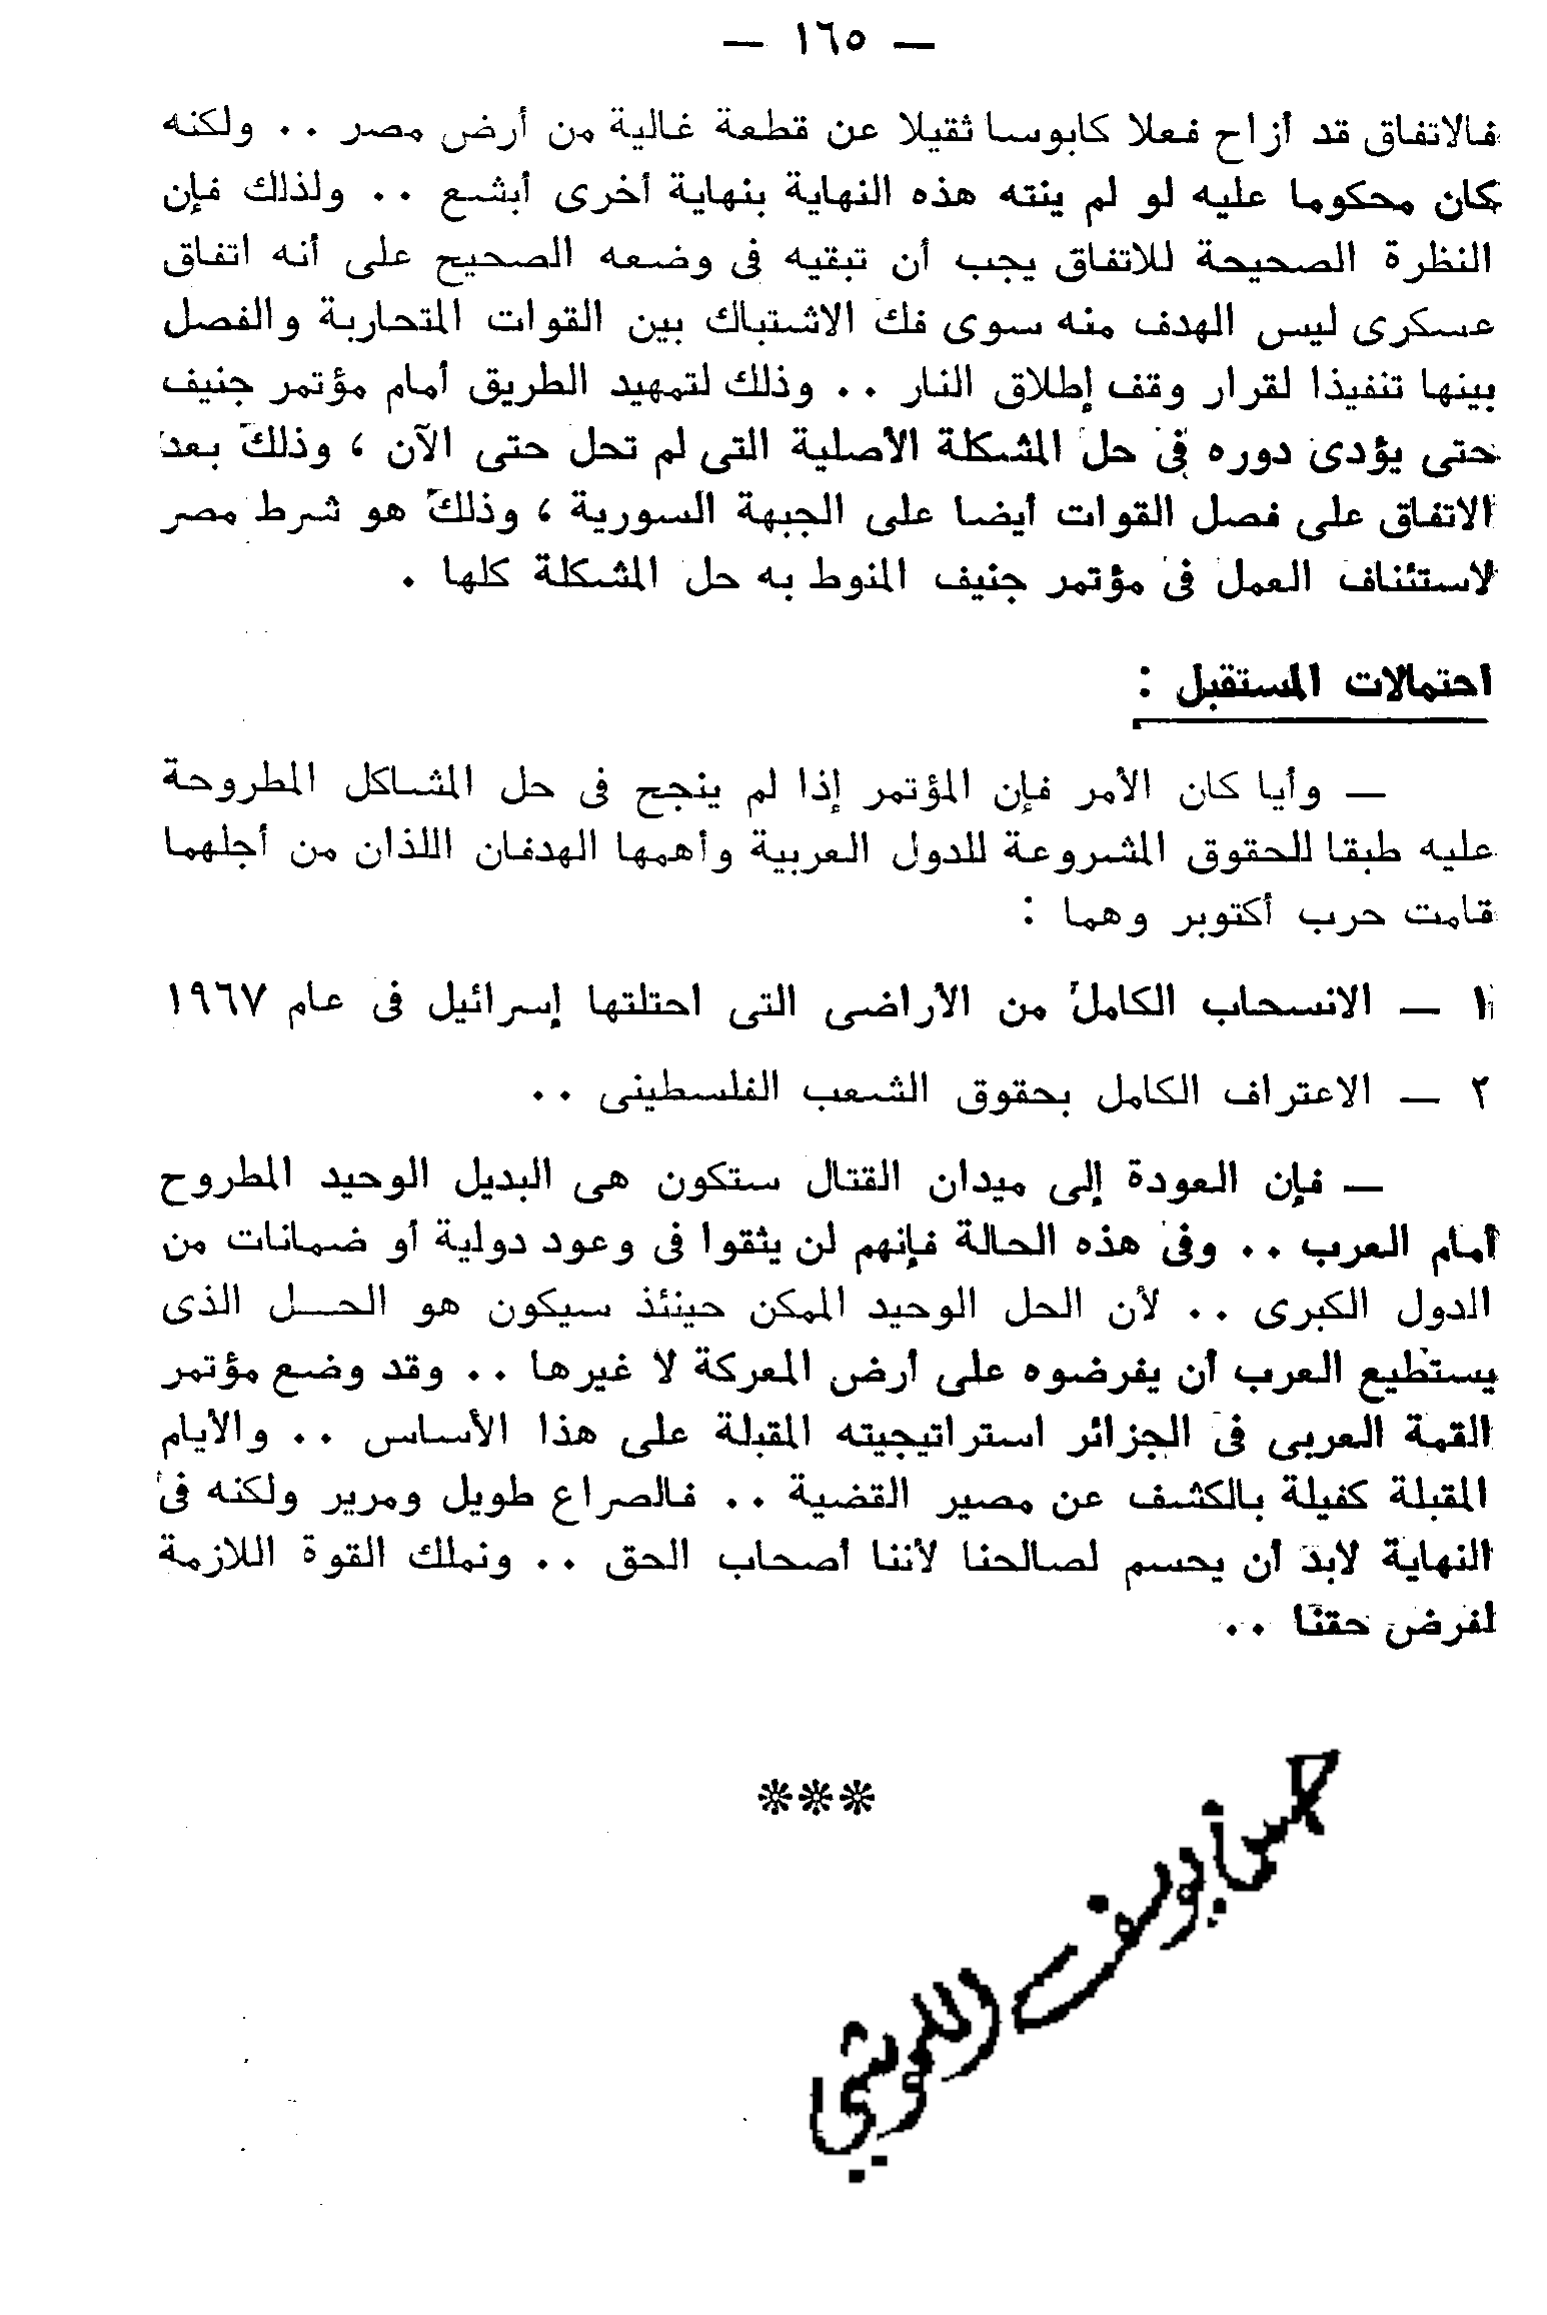 — ١٦٥ —
فالاتفاق قد أزاح فعلا كابوسا ثقيلا عن قطعة غالية من أرض مصر .. ولكنه
كان محكوما عليه لو لم ينته هذه النهاية بنهاية أخرى أبشع .. ولذلك فإن
النظرة الصحيحة للاتفاق يجب أن تبقيه فى وضعه الصحيح على أنه اتفاق
عسكرى ليس الهدف منه سوى فك الاشتباك بين القوات المتحاربة والفصل
بينها تنفيذا لقرار وقف إطلاق النار .. وذلك لتمهيد الطريق أمام مؤتمر جنيف
حتى يؤدى دوره فى حل المشكلة الأصلية التى لم تحل حتى الآن ، وذلك بعد
الاتفاق على فصل القوات أيضا على الجبهة السورية ، وذلك هو شرط مصر
لاستئناف العمل فى مؤتمر جنيف المنوط به حل المشكلة كلها .
احتمالات المستقبل :
— وأيا كان الأمر فإن المؤتمر إذا لم ينجح فى حل المشاكل المطروحة
عليه طبقا للحقوق المشروعة للدول العربية وأهمها الهدفان اللذان من أجلهما
قامت حرب أكتوبر وهما :
١ — الانسحاب الكامل من الأراضى التى احتلتها إسرائيل فى عام ١٩٦٧
٢ — الاعتراف الكامل بحقوق الشعب الفلسطينى ..
— فإن العودة إلى ميدان القتال ستكون هى البديل الوحيد المطروح
أمام العرب .. وفى هذه الحالة فإنهم لن يثقوا فى وعود دولية أو ضمانات من
الدول الكبرى .. لأن الحل الوحيد الممكن حينئذ سيكون هو الحــل الذى
يستطيع العرب أن يفرضوه على أرض المعركة لا غيرها .. وقد وضع مؤتمر
القمة العربى فى الجزائر استراتيجيته المقبلة على هذا الأساس .. والأيام
المقبلة كفيلة بالكشف عن مصير القضية .. فالصراع طويل ومرير ولكنه فى
النهاية لابد أن يحسم لصالحنا لأننا أصحاب الحق .. ونملك القوة اللازمة
لفرض حقنا ..
***